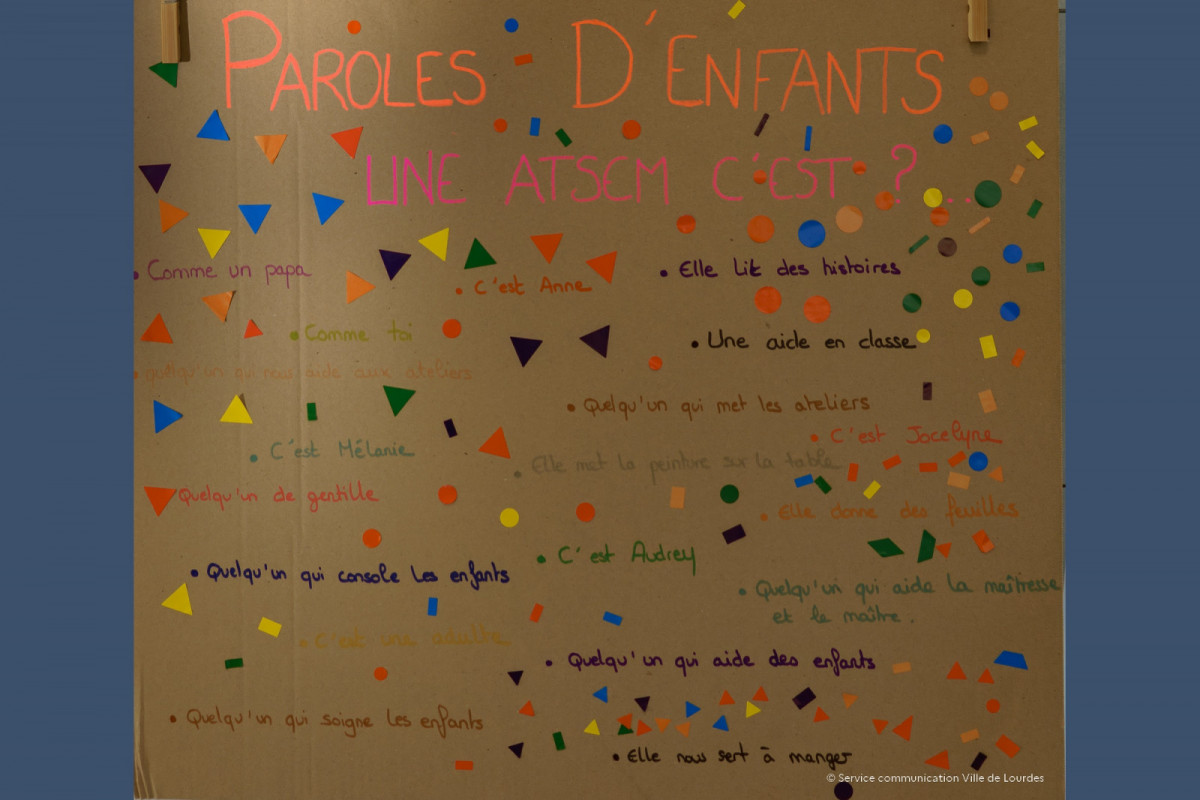 PAROLES D'ENFANTS
UNE ATSEM C'EST ? ...
• Comme un papa
• C'est Anne
• Elle lit des histoires
• Comme toi
• Une aide en classe
• quelqu'un qui nous aide aux ateliers
• Quelqu'un qui met les ateliers
• C'est Jocelyne
• C'est Mélanie
• Elle met la peinture sur la table
Quelqu'un de gentille
• Elle donne des feuilles
• C'est Audrey
• Quelqu'un qui console les enfants
• Quelqu'un qui aide la maîtresse
et le maître.
• C'est une adulte
• Quelqu'un qui aide des enfants
• Quelqu'un qui soigne les enfants
• Elle nous sert à manger
© Service communication Ville de Lourdes